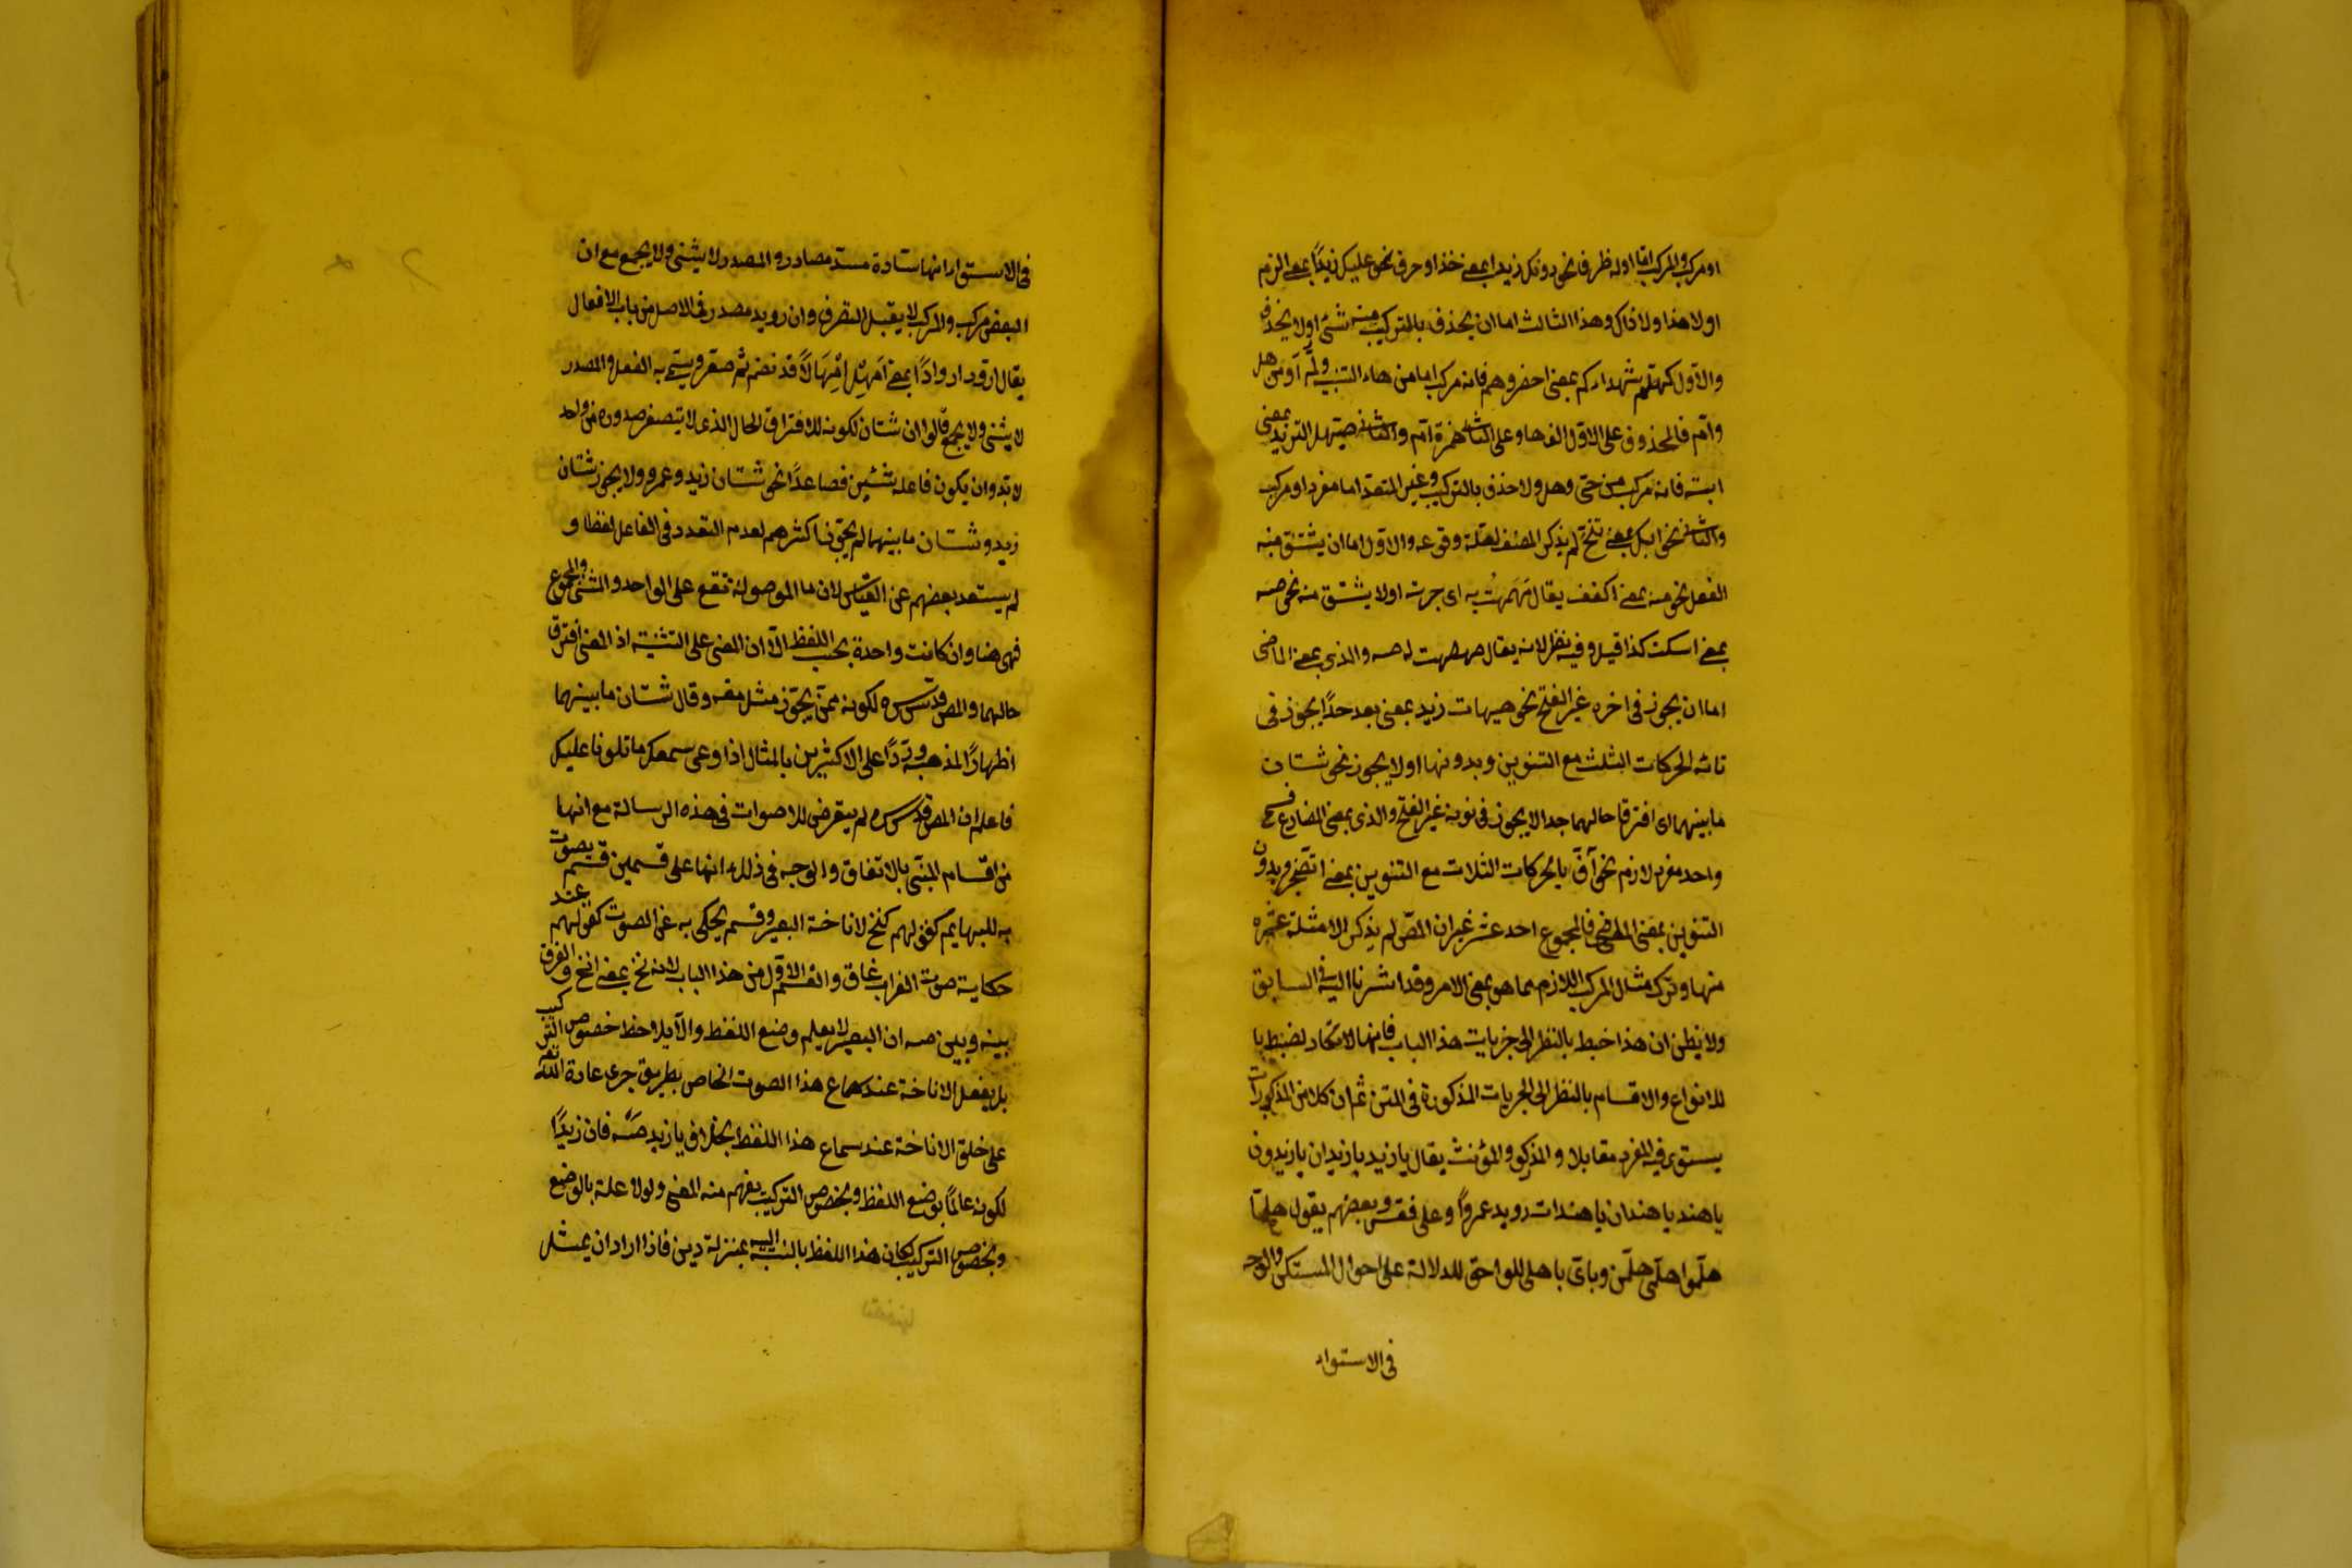 او مركب والمركب اما اوله ظرف نحو دونك زيدا بمعنى خذ او حرف نحو عليك زيدًا بمعنى الزم
او لا هذا ولا ذاك وهذا الثالث اما ان يحذف بالتركيب منه شئ او لا يحذف
والاول كهلم شهداءكم بمعنى احضروهم فانه مركب اما من هاء التنبيه ولمّ او من هل
وامّ فالمحذوف على الاول الف ها وعلى الثانى همزة امّ والثانى حيهل الثريد بمعنى
ايته فانه مركب من حى وهل ولا حذف بالتركيب وغير المتعد اما مفرد او مركب
والثانى نحو اليك بمعنى تنح لم يذكر المصنف لقلة وقوعه والاول اما ان يشتق منه
الفعل نحو مه بمعنى اكفف يقال مهمهت به اى زجرته او لا يشتق منه نحو صه
بمعنى اسكت كذا قيل وفيه نظر لانه يقال صهصهت له صه والذى بمعنى الماضى
اما ان يجوز فى اخره غير الفتح نحو هيهات زيد بمعنى بعد جدًا يجوز فى
تائه الحركات الثلث مع التنوين وبدونها او لا يجوز نحو شتان
ما بينهما اى افترقا حالهما جدا لا يجوز فى نونه غير الفتح والذى بمعنى المضارع قسم
واحد مفرد لازم نحو آفّ بالحركات الثلاث مع التنوين بمعنى اتضجر وبدون
التنوين بمعنى الماضى فالمجموع احد عشر غير ان المصّ لم يذكر الا امثلة عشره
منها وترك مثال المركب اللازم مما هو بمعنى الامر وقد اشرنا اليه فى السابق
ولا يظن ان هذا ضبط بالنظر الى جزيات هذا الباب فانها لا تكاد تضبط بل
للانواع والاقسام بالنظر الى الجزيات المذكورة فى المتن ثم ان كلا من المذكورات
يستوى فيه المفرد مقابلا و المذكر والمؤنث يقال يا زيد يا زيدان يا زيدون
يا هند يا هندان يا هندات رويد عمروًا وعلى فقس وبعضهم يقول هلمّا
هلمّوا هلمّى هلممن وياتى باهلى للواحق للدلالة على احوال المستكن والوجه
فى الاستواء
فى الاستواء انها سادة مسدّ مصادر و المصدر لا يثنى ولا يجمع مع ان
البعض مركب والمركب لا يقبل التصرف وان رويد مصدر فى الاصل من باب الافعال
يقال ارود اروادًا بمعنى امهل امهالًا قد تضم ثم صغر ويسمى به الفعل والمصدر
لا يثنى ولا يجمع قالوا ان شتان لكونه للافتراق الحال الذى لا يتصور صدوره من واحد
لا بد وان يكون فاعله شيئين فصاعدًا نحو شتان زيد وعمرو ولا يجوز شتان
زيد و شتان ما بينهما لم يجوزنا اكثرهم لعدم التعدد فى الفاعل لفظا و
لم يستبعد بعضهم عن القياس لان ما الموصولة تقع على الواحد والمثنى والمجموع
فهى هنا وان كانت واحدة بحسب اللفظ الا ان المعنى على التثنية اذ المعنى افترق
حالهما والمص قدس سره لكونه ممن يجوّز مثل معه وقال شتان ما بينهما
اظهارًا لمذهبه وردًا على الاكثرين بالمثال اذا وعى سمعك ما تلونا عليك
فاعلم ان المص قدس سره لم يتعرض للاصوات فى هذه الرسالة مع انها
من اقسام المبنى بالاتفاق والوجه فى ذلك انها على قسمين قسم يصوت
به للبهايم كقولهم كنخ لاناخة البعير وقسم يحكى به عن الصوت كقولهم عند
حكاية صوت الغراب غاق والقسم الاول من هذا الباب لانه نخ بمعنى انخ والفرق
بينه وبين صه ان البعير لا يعلم وضع اللفظ والا يلاحظ خصوص التركيب
بل يفعل الاناخة عند سماع هذا الصوت الخاص بطريق جرى عادة الله تعه
على خلق الاناخة عند سماع هذا اللفظ بخلاف يا زيد صهْ فان زيدًا
لكونه عالمًا بوضع اللفظ وبخصوص التركيب يفهم منه المعنى ولولا علمه بالوضع
وبخصوص التركيب لكان هذا اللفظ بالنسبة اليه بمنزلة ديز فاذا اراد ان يمثل